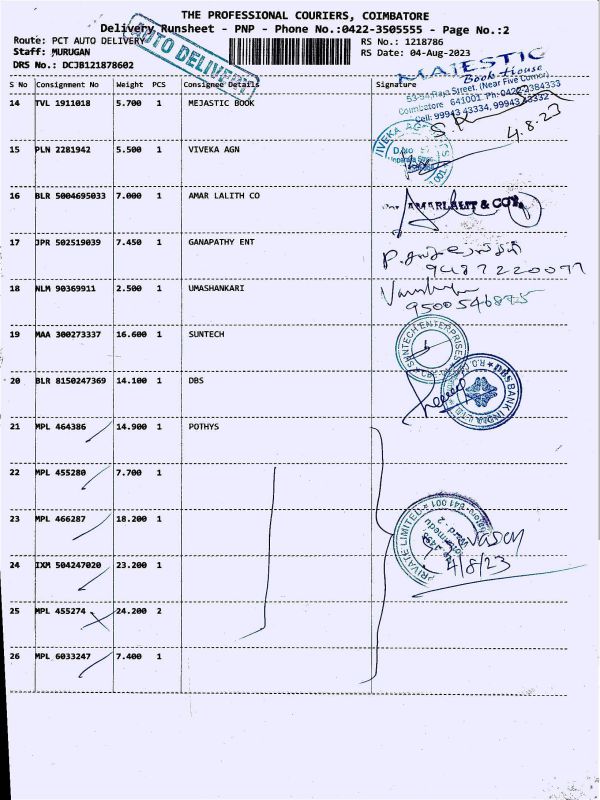 THE PROFESSIONAL COURIERS, COIMBATORE
Delivery Runsheet - PNP - Phone No.:0422-3505555 - Page No.:2
Route: PCT AUTO DELIVERY
RS No.: 1218786
Staff: MURUGAN
RS Date: 04-Aug-2023
DRS No.: DCJB121878602
AUTO DELIVERY
S No Consignment No Weight PCS Consignee Details Signature
MAJESTIC
Book House
53-94, Raja Street, (Near Five Corner)
Coimbatore 641001. Ph: 0422-2384333
Cell: 99943 43334, 99943 43332
14 TVL 1911018 5.700 1 MEJASTIC BOOK
4.8.23
15 PLN 2281942 5.500 1 VIVEKA AGN
16 BLR 5004695033 7.000 1 AMAR LALITH CO
AMARLALIT & CO
17 JPR 502519039 7.450 1 GANAPATHY ENT
18 NLM 90369911 2.500 1 UMASHANKARI
19 MAA 300273337 16.600 1 SUNTECH
SUNTECH ENTERPRISES
20 BLR 8150247369 14.100 1 DBS
DBS BANK INDIA LTD
21 MPL 464386 14.900 1 POTHYS
22 MPL 455280 7.700 1
23 MPL 466287 18.200 1
PRIVATE LIMITED
24 IXM 504247020 23.200 1
4/8/23
25 MPL 455274 24.200 2
26 MPL 6033247 7.400 1